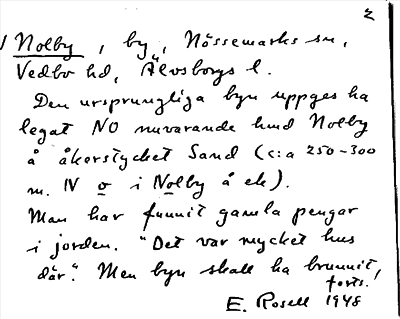 2
Nolby, by, Nössemarks sn,
Vedbo hd, Älvsborgs l.
Den ursprungliga byn uppges ha
legat NO nuvarande hmd Nolby
å åkerstycket Sand (c:a 250-300
m. N o i Nolby å ek).
Man har funnit gamla pengar
i jorden. "Det var mycket hus
där." Men byn skall ha brunnit,
forts.!
E. Rosell 1948